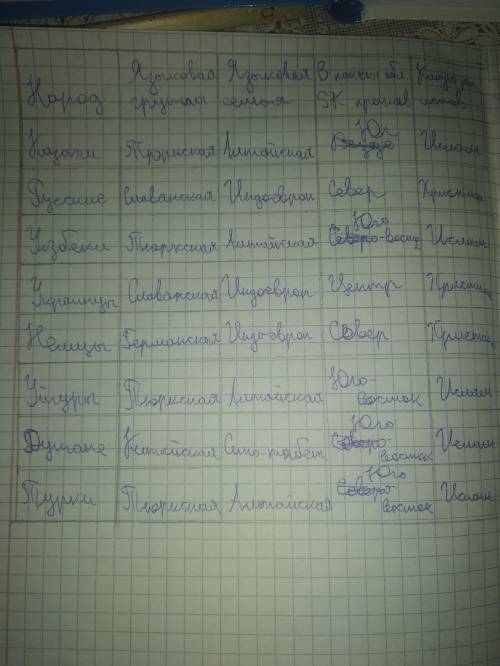 Народ Языковая группа Языковая семья В каких обл. РК прожив
Казахи Тюркская Алтайская Юг Ислам
Русские Славянская Индоевроп Север Христиан
Узбеки Тюркская Алтайская Юго-вост Ислам
Украинцы Славянская Индоевроп Центр
Немцы Германская Индо-европ Север
Уйгуры Тюркская Алтайская Юго-восток Ислам
Дунгане Китайская Сино-тибет Юго-восток Ислам
Турки Тюркская Алтайская Юго восток Ислам